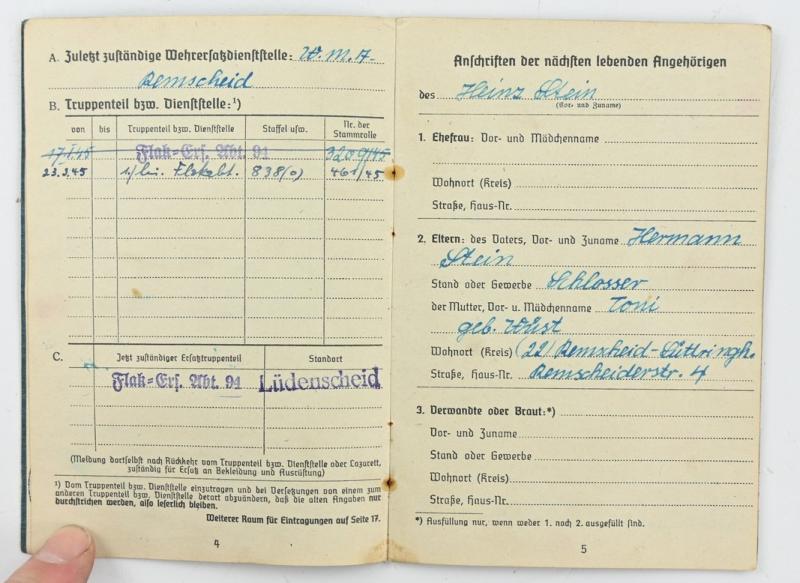 A. Zuletzt zuständige Wehrersatzdienststelle: W.M.A.
Remscheid
B. Truppenteil bzw. Dienststelle:¹)
von bis Truppenteil bzw. Dienststelle Staffel usw. Nr. der Stammrolle
17.1.45 Flak-Ers. Abt. 94 3209/45
23.3.45 Flakabt. 838(o) 461/45
C. Jetzt zuständiger Ersatztruppenteil Standort
Flak-Ers. Abt. 94 Lüdenscheid
(Meldung dortselbst nach Rückkehr vom Truppenteil bzw. Dienststelle oder Lazarett,
zuständig für Ersatz an Bekleidung und Ausrüstung)
¹) Vom Truppenteil bzw. Dienststelle einzutragen und bei Versetzungen von einem zum
anderen Truppenteil bzw. Dienststelle derart abzuändern, daß die alten Angaben nur
durchstrichen werden, also leserlich bleiben.
Weiterer Raum für Eintragungen auf Seite 17.
4
Anschriften der nächsten lebenden Angehörigen
des Heinz Stein
(Vor- und Zuname)
1. Ehefrau: Vor- und Mädchenname
Wohnort (Kreis)
Straße, Haus-Nr.
2. Eltern: des Vaters, Vor- und Zuname Hermann
Stein
Stand oder Gewerbe Schlosser
der Mutter, Vor- u. Mädchenname Toni
geb. Wüst
Wohnort (Kreis) (22) Remscheid-Lüttringh.
Straße, Haus-Nr. Remscheiderstr. 4
3. Verwandte oder Braut:*)
Vor- und Zuname
Stand oder Gewerbe
Wohnort (Kreis)
Straße, Haus-Nr.
*) Ausfüllung nur, wenn weder 1. noch 2. ausgefüllt sind.
5